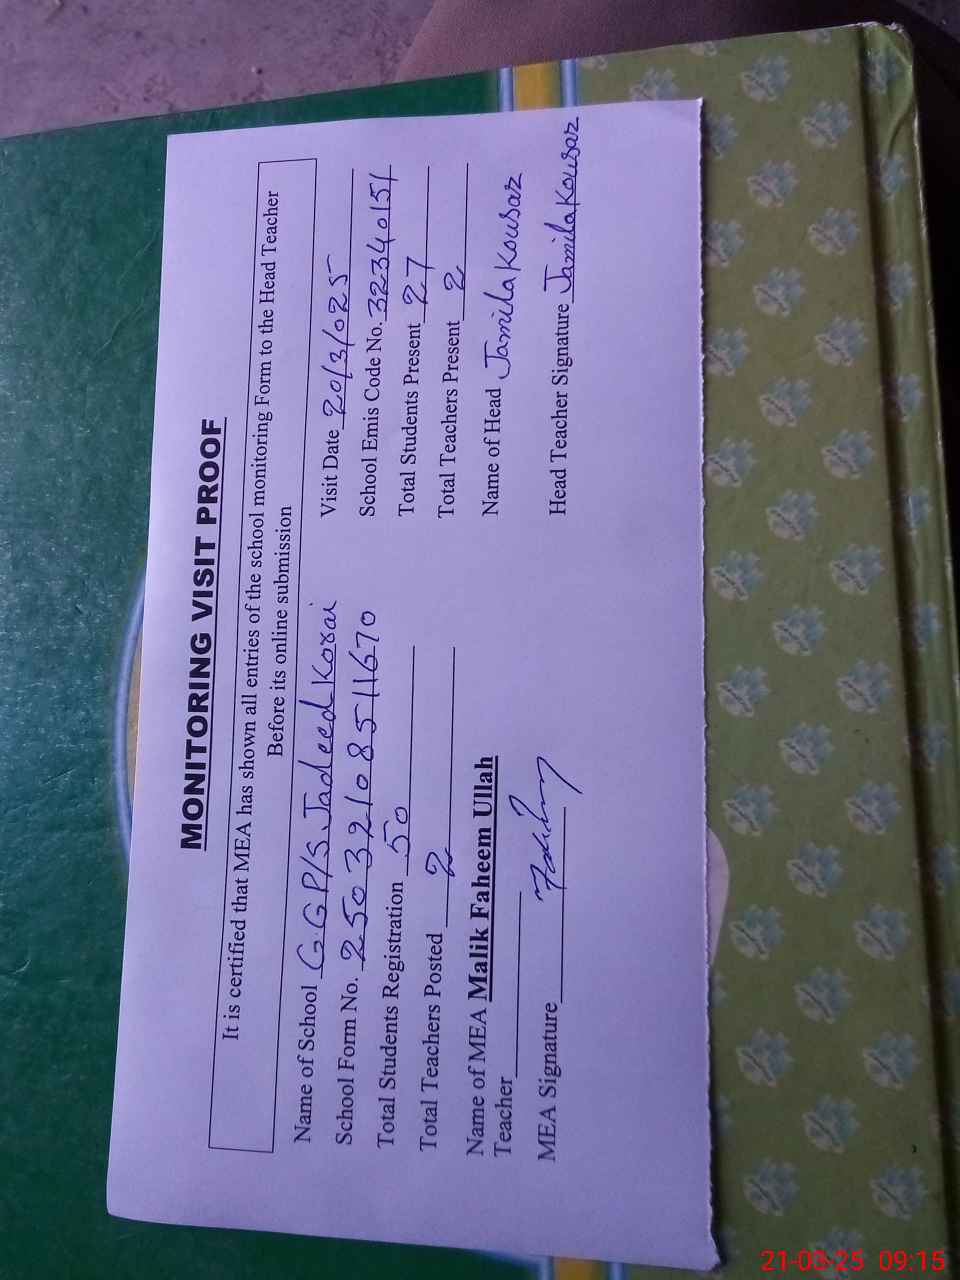 MONITORING VISIT PROOF
It is certified that MEA has shown all entries of the school monitoring Form to the Head Teacher
Before its online submission
Name of School GGP/S Jadeed Korai Visit Date 20/3/025
School Form No. 25032108511670 School Emis Code No. 32340151
Total Students Registration 50 Total Students Present 27
Total Teachers Posted 2 Total Teachers Present 2
Name of MEA Malik Faheem Ullah Name of Head Jamila Kousar
Teacher
MEA Signature Head Teacher Signature Jamila Kousar
21-03-25 09:15